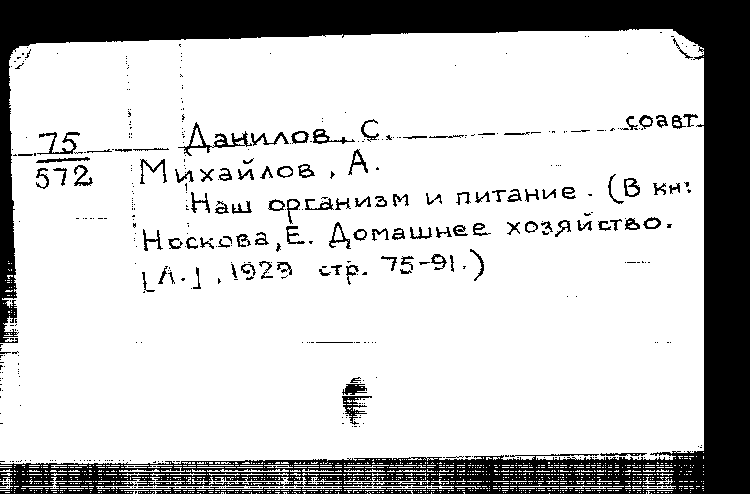 75 Данилов, С. соавт.
572 Михайлов, А.
Наш организм и питание. (В кн:
Носкова, Е. Домашнее хозяйство.
[Л.], 1929 стр. 75-91.)